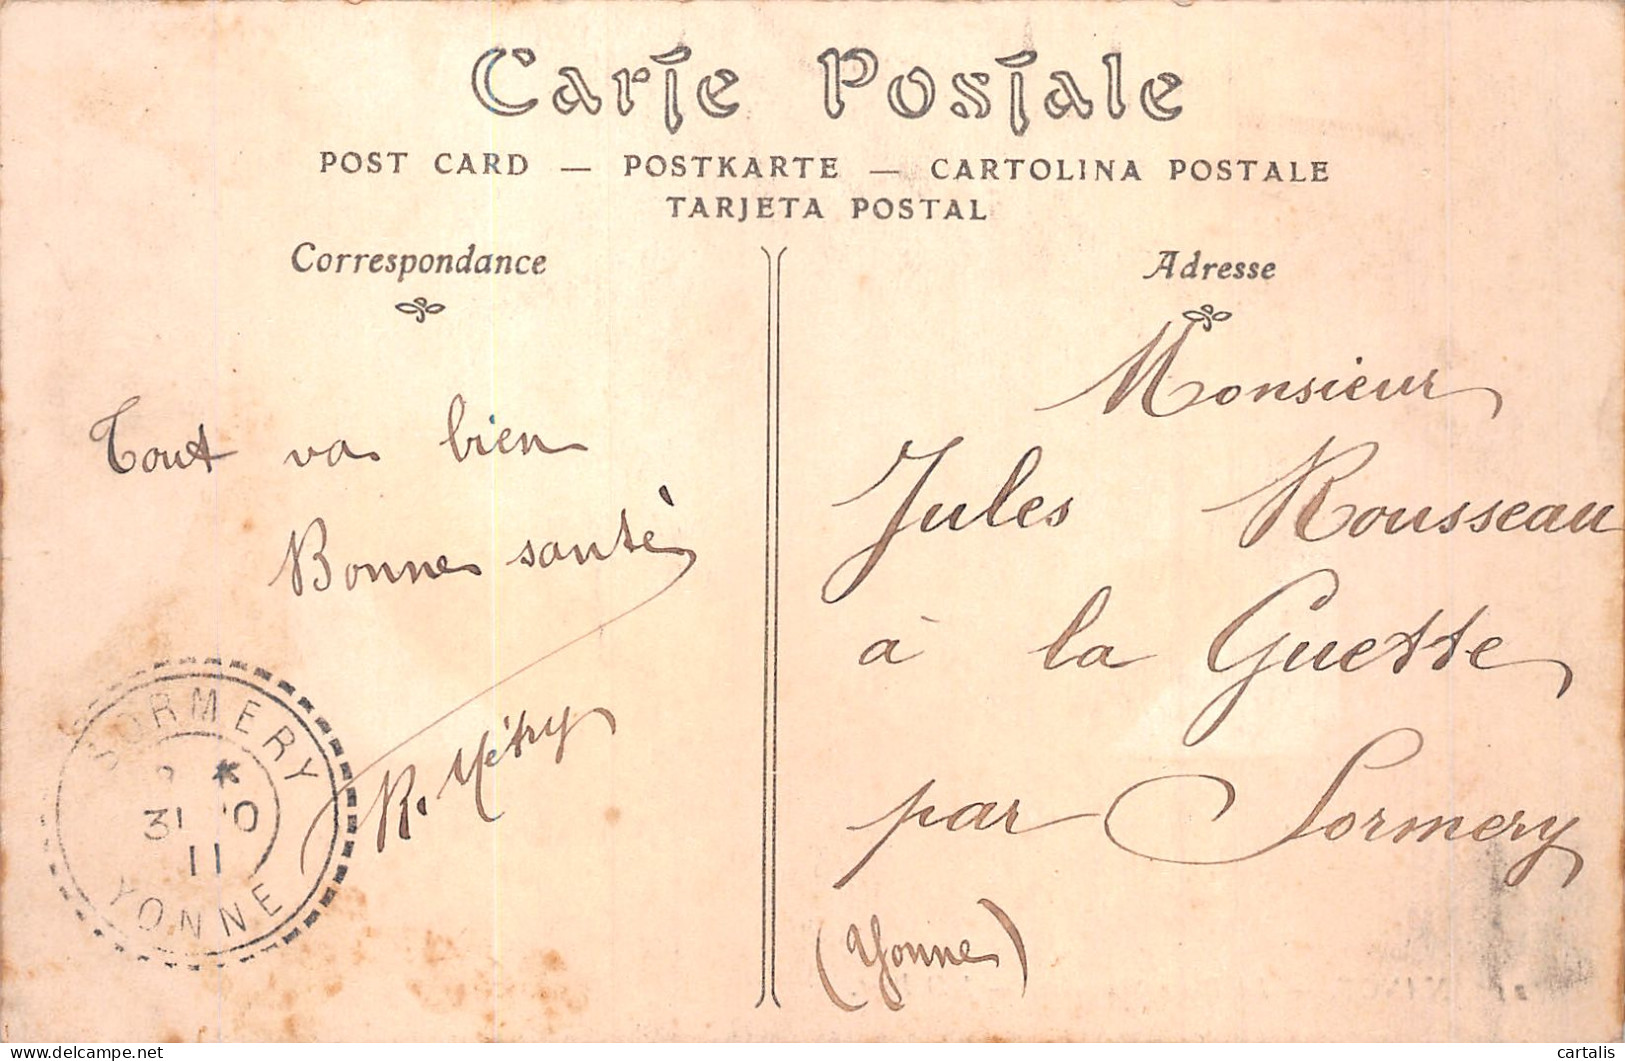 Carte Postale
POST CARD — POSTKARTE — CARTOLINA POSTALE
TARJETA POSTAL
Correspondance
Tout va bien
Bonne santé
R. Métry
SORMERY
*
31 10
11
YONNE
Adresse
Monsieur
Jules Rousseau
à la Guette
par Sormery
(Yonne)
delcampe.net
cartalis